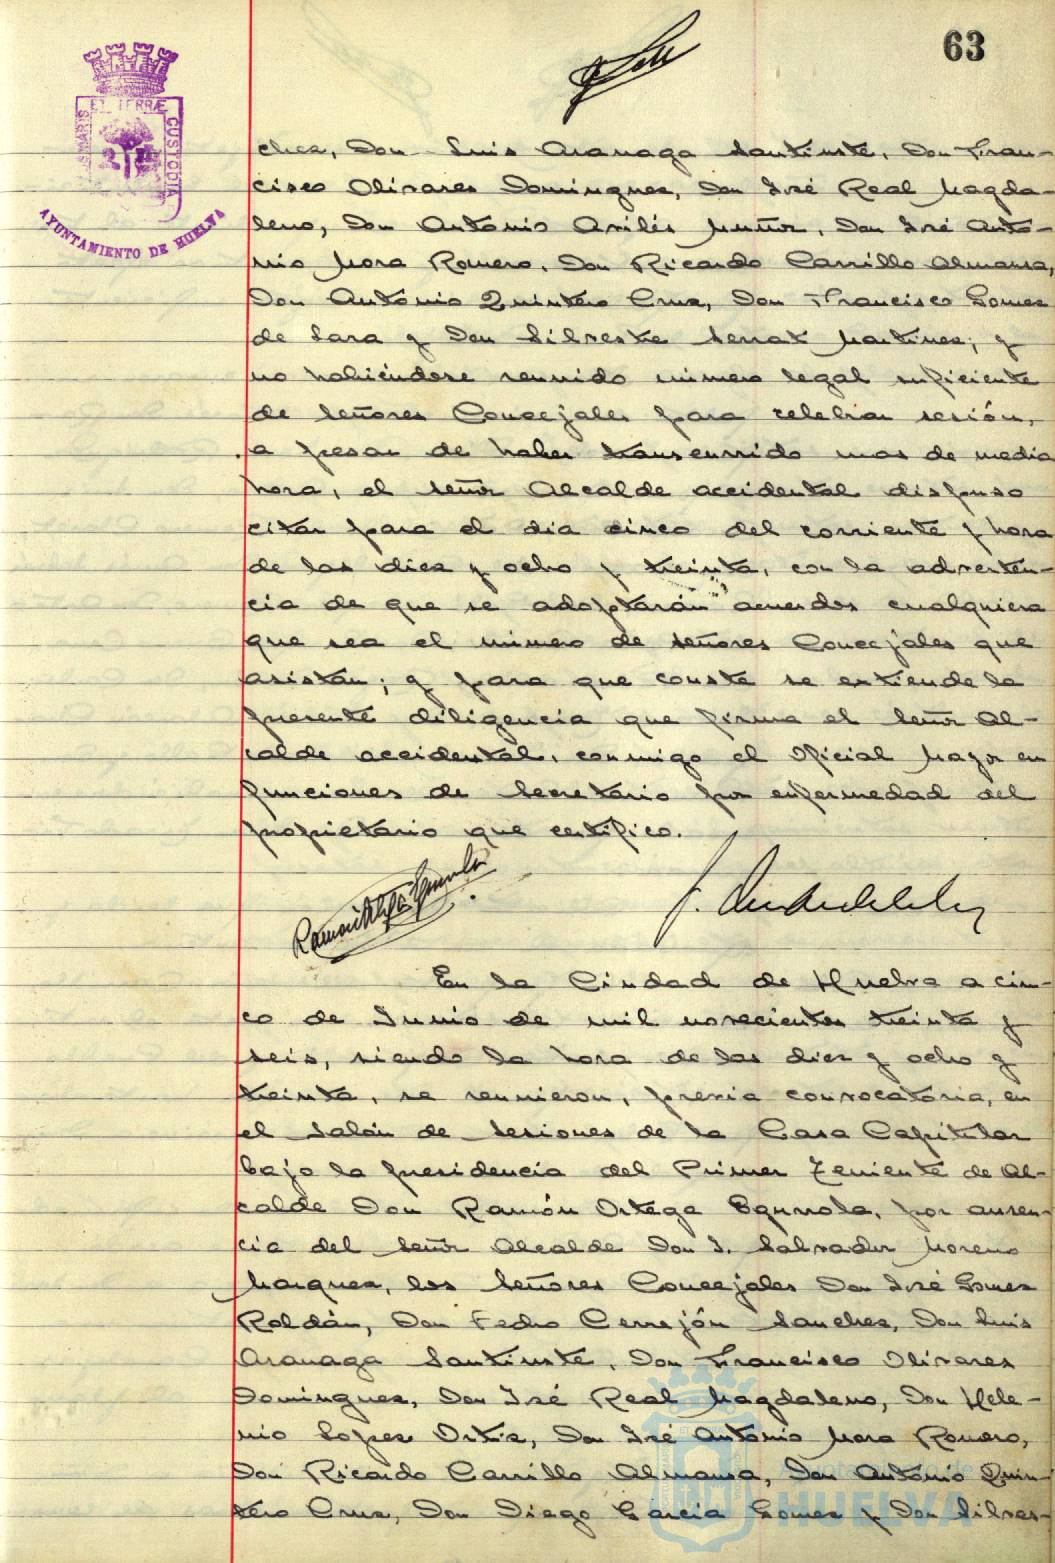 63
PORTUS MARIS ET TERRÆ CUSTODIA
AYUNTAMIENTO DE HUELVA
chez, Don Luis Aranaga Santiuste, Don Fran-
cisco Olivares Dominguez, Don José Real Magda-
leno, Don Antonio Avilés Muñoz, Don José Anto-
nio Mora Romero, Don Ricardo Carrillo Almansa,
Don Antonio Quintero Cruz, Don Francisco Gomez
de Lara y Don Silvestre Serrat Martinez; y
no habiéndose reunido número legal suficiente
de Señores Concejales para celebrar sesión,
a pesar de haber transcurrido mas de media
hora, el Señor Alcalde accidental dispuso
citar para el dia cinco del corriente y hora
de las diez y ocho y treinta, con la adverten-
cia de que se adoptarán acuerdos cualquiera
que sea el número de Señores Concejales que
asistan; y para que conste se extiende la
presente diligencia que firma el Señor Al-
calde accidental, conmigo el Oficial Mayor en
funciones de Secretario por enfermedad del
propietario que certifico.
En la Ciudad de Huelva a cin-
co de Junio de mil novecientos treinta y
seis, siendo la hora de las diez y ocho y
treinta, se reunieron, previa convocatoria, en
el Salón de Sesiones de la Casa Capitular
bajo la presidencia del Primer Teniente de Al-
calde Don Ramón Ortega Egurrola, por ausen-
cia del Señor Alcalde Don J. Salvador Moreno
Marquez, los Señores Concejales Don José Gomez
Roldán, Don Pedro Cerrejón Sanchez, Don Luis
Aranaga Santiuste, Don Francisco Olivares
Dominguez, Don José Real Magdaleno, Don Hele-
nio Lopez Ortiz, Don José Antonio Mora Romero,
Don Ricardo Carrillo Almansa, Don Antonio Quin-
tero Cruz, Don Diego Garcia Gomez y Don Silves-
Ayuntamiento de
HUELVA